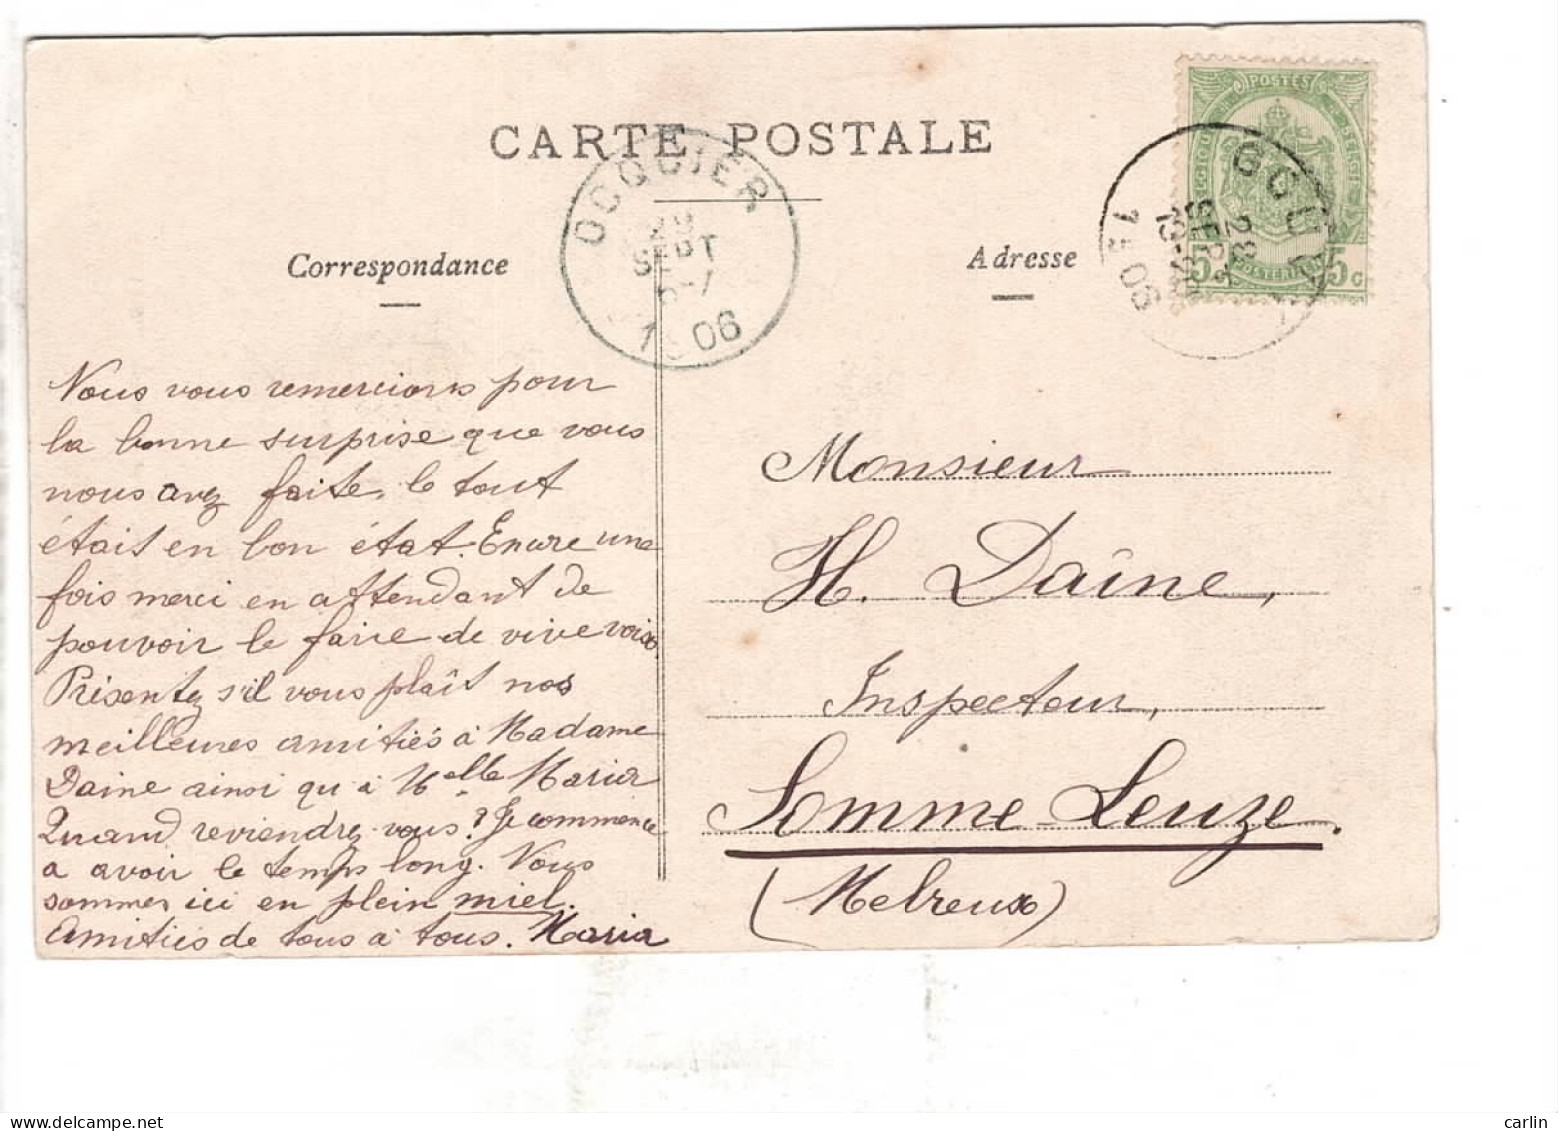 CARTE POSTALE
Correspondance
Adresse
POSTES
5 5 c
OCQUIER
29
SEPT
6-7
1906
28
SEPT
1906
Nous vous remercions pour
la bonne surprise que vous
nous avez faite, le tout
étais en bon état. Encore une
fois merci en attendant de
pouvoir le faire de vive voix.
Présentez s'il vous plaît nos
meilleures amitiés à Madame
Daine ainsi qu'à Melle Maria
Quand reviendrez-vous? Je commence
a avoir le temps long. Nous
sommes ici en plein miel.
Amitiés de tous à tous. Maria
Monsieur
H. Daîne,
Inspecteur,
Somme-Leuze.
(Melreux)
carlin
www.delcampe.net